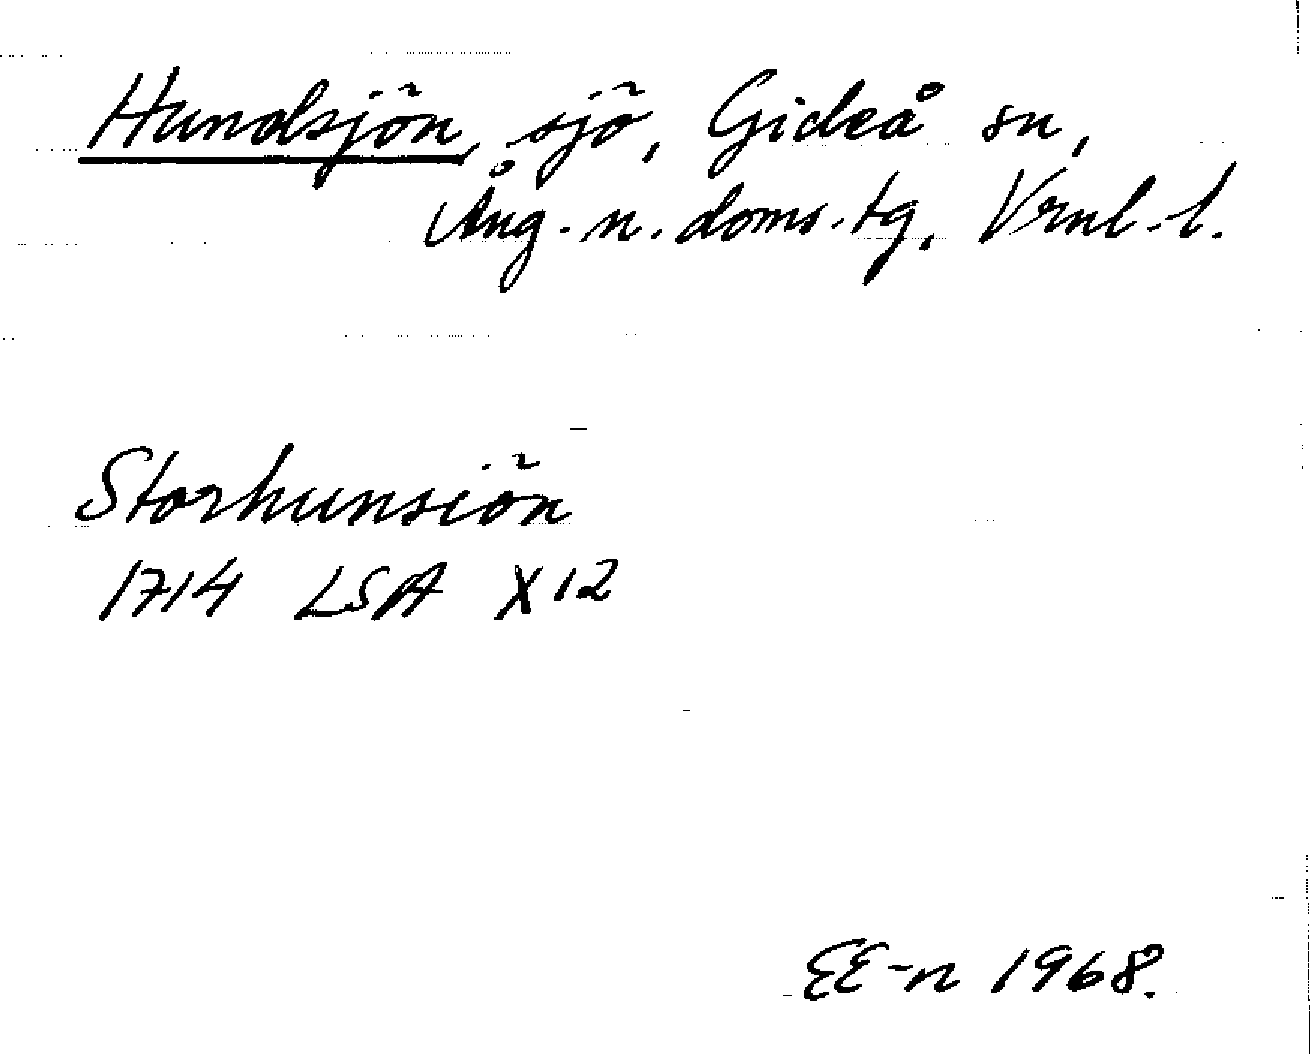 Hundsjön, sjö, Gideå sn,
Ång. n. doms.tg, Vrnl. l.
Storhunsiön
1714 LSA X12
EE-n 1968.